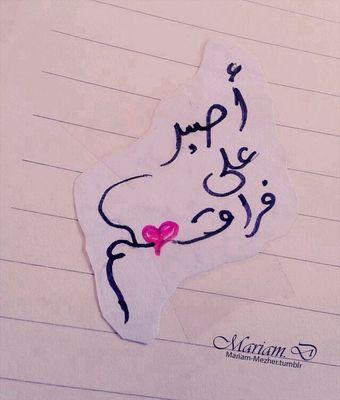 أصبر
على
فراقكم
Mariam.D
Mariam-Mezher.tumblr